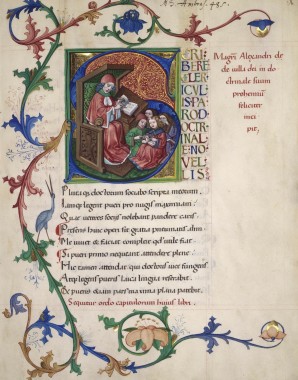 SCRIBERE
CLERI
CVLIS PA
RO DOCT
RINAL
E NO
VEL
LIS
Magistri Alexandri de
de villa dei in do
ctrinale suum
prohemium
feliciter
inci
pit,
Pluraqȝ doctorum sociabo scripta meorum.
Iamqȝ legent pueri pro nugis
Quae veteres sociis nolebant pandere caris.
Presens huic operi sit gratia
Me iuuet et faciat complere quod utile fiat.
Si pueri primo nequeant attendere plene
Hic tamen attendat qui doctoris vice fungens
Atqȝ legens pueris laica lingua reserabit.
Et pueris etiam pars maxima plana patebit.
Sequitur ordo capitulorum huius libri.